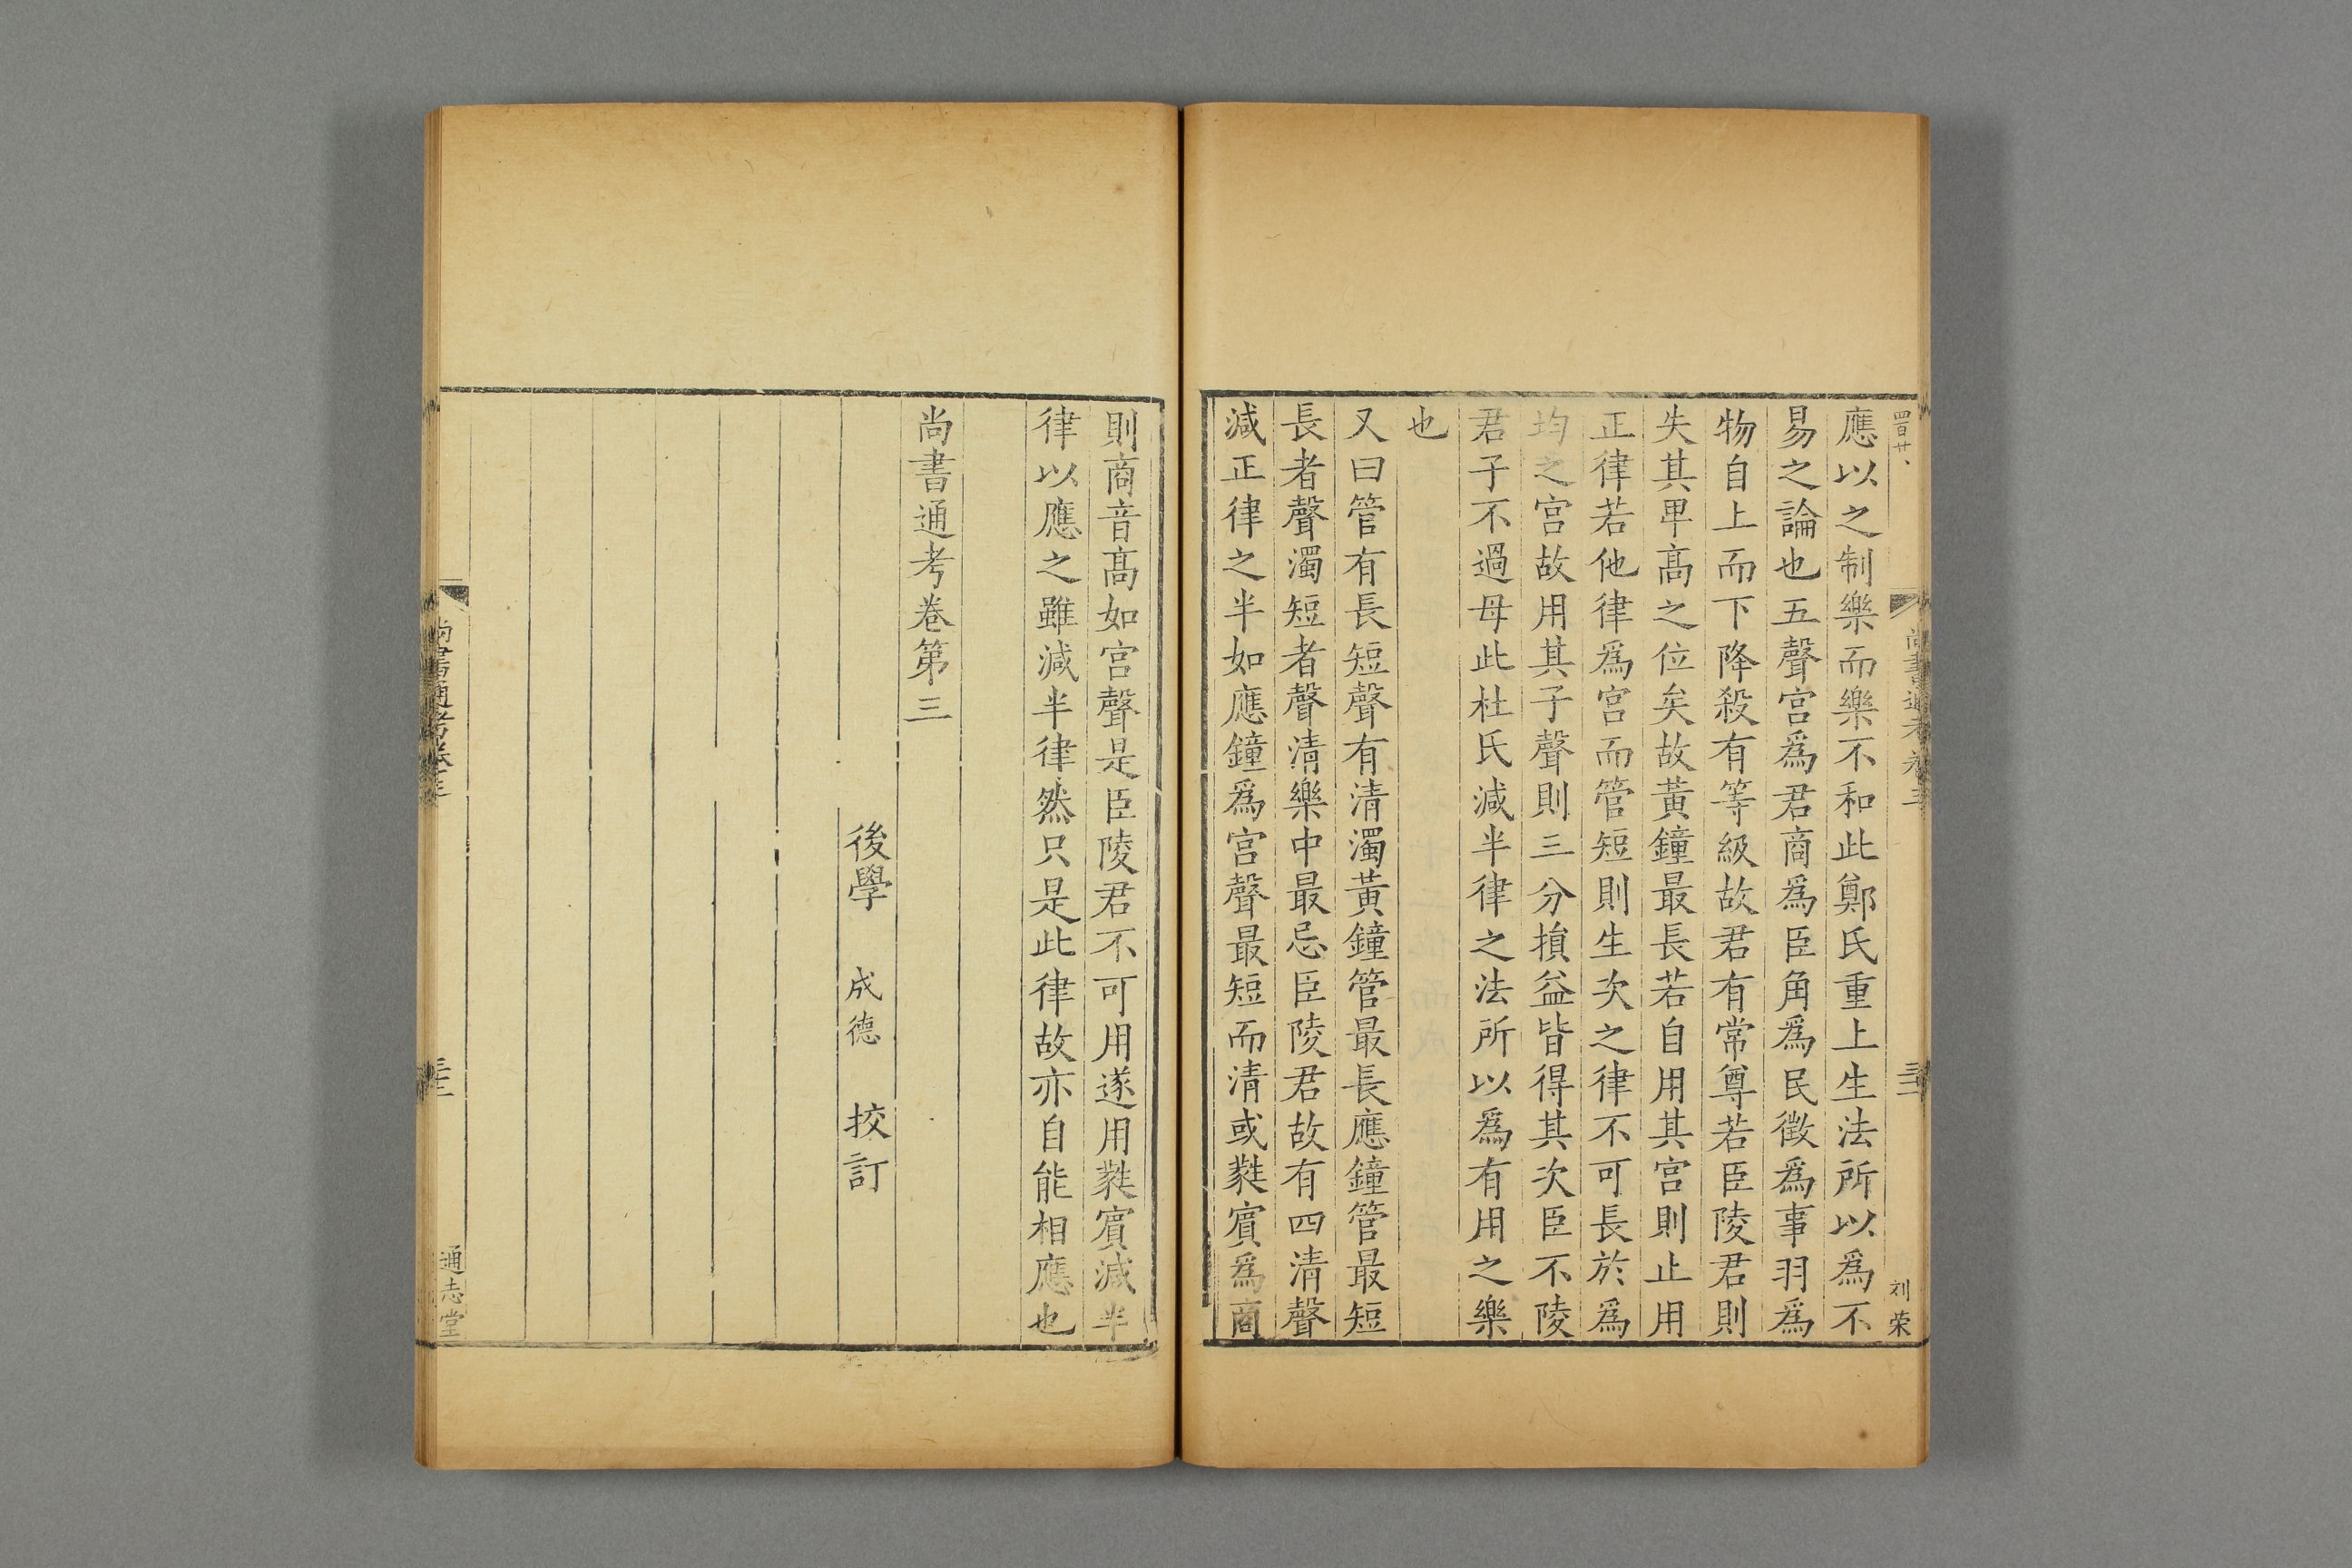 應以之制樂而樂不和此鄭氏重上生法所以爲不
易之論也五聲宮爲君商爲臣角爲民徵爲事羽爲
物自上而下降殺有等級故君有常尊若臣陵君則
失其卑高之位矣故黃鐘最長若自用其宮則止用
正律若他律爲宮而管短則生次之律不可長於爲
均之宮故用其子聲則三分損益皆得其次臣不陵
君子不過母此杜氏減半律之法所以爲有用之樂
也
又曰管有長短聲有清濁黃鐘管最長應鐘管最短
長者聲濁短者聲清樂中最忌臣陵君故有四清聲
減正律之半如應鐘爲宮聲最短而清或蕤賓爲商
則商音高如宮聲是臣陵君不可用遂用蕤賓減半
律以應之雖減半律然只是此律故亦自能相應也
尚書通考卷第三
後學 成德 挍訂
尚書通考卷三
刘荣
通志堂